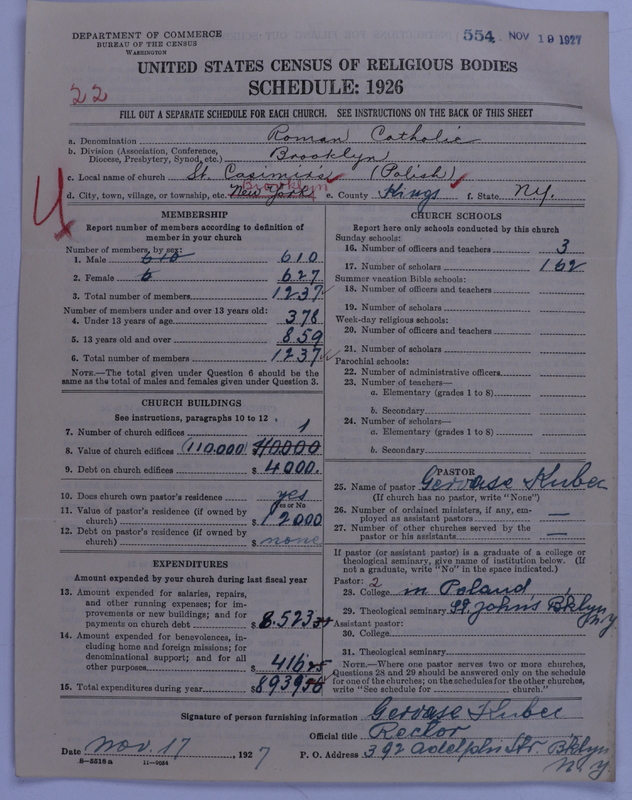 DEPARTMENT OF COMMERCE
BUREAU OF THE CENSUS
WASHINGTON
554 NOV 19 1927
UNITED STATES CENSUS OF RELIGIOUS BODIES
SCHEDULE: 1926
22
FILL OUT A SEPARATE SCHEDULE FOR EACH CHURCH. SEE INSTRUCTIONS ON THE BACK OF THIS SHEET
a. Denomination Roman Catholic
b. Division (Association, Conference, Diocese, Presbytery, Synod, etc.) Brooklyn
c. Local name of church St. Casimir's (Polish)
d. City, town, village, or township, etc. New York Brooklyn e. County Kings f. State N.Y.
4
MEMBERSHIP
Report number of members according to definition of
member in your church
Number of members, by sex:
1. Male 610 610
2. Female 6 627
3. Total number of members 1237
Number of members under and over 13 years old:
4. Under 13 years of age 378
5. 13 years old and over 859
6. Total number of members 1237
NOTE.—The total given under Question 6 should be the
same as the total of males and females given under Question 3.
CHURCH BUILDINGS
See instructions, paragraphs 10 to 12
7. Number of church edifices 1
8. Value of church edifices (110.000) $110.000
9. Debt on church edifices $ 4000.
10. Does church own pastor's residence yes
Yes or No
11. Value of pastor's residence (if owned by
church) $ 12000
12. Debt on pastor's residence (if owned by
church) $ none
EXPENDITURES
Amount expended by your church during last fiscal year
13. Amount expended for salaries, repairs,
and other running expenses; for im-
provements or new buildings; and for
payments on church debt $ 8.523
14. Amount expended for benevolences, in-
cluding home and foreign missions; for
denominational support; and for all
other purposes $ 416 25
15. Total expenditures during year $ 8939 56
CHURCH SCHOOLS
Report here only schools conducted by this church
Sunday schools:
16. Number of officers and teachers 3
17. Number of scholars 162
Summer vacation Bible schools:
18. Number of officers and teachers
19. Number of scholars
Week-day religious schools:
20. Number of officers and teachers
21. Number of scholars
Parochial schools:
22. Number of administrative officers
23. Number of teachers—
a. Elementary (grades 1 to 8)
b. Secondary
24. Number of scholars—
a. Elementary (grades 1 to 8)
b. Secondary
PASTOR
25. Name of pastor Gervase Kubec
(If church has no pastor, write "None")
26. Number of ordained ministers, if any, em-
ployed as assistant pastors —
27. Number of other churches served by the
pastor or his assistants —
If pastor (or assistant pastor) is a graduate of a college or
theological seminary, give name of institution below. (If
not a graduate, write "No" in the space indicated.)
Pastor: 2
28. College in Poland
29. Theological seminary St. John's Bklyn N.Y
Assistant pastor:
30. College
31. Theological seminary
NOTE.—Where one pastor serves two or more churches,
Questions 28 and 29 should be answered only on the schedule
for one of the churches; on the schedules for the other churches,
write "See schedule for church."
Signature of person furnishing information Gervase Kubec
Official title Rector
Date Nov. 17, 1927 P. O. Address 392 Adelphi Str. Bklyn
N.Y
8-5518 a 11-9064